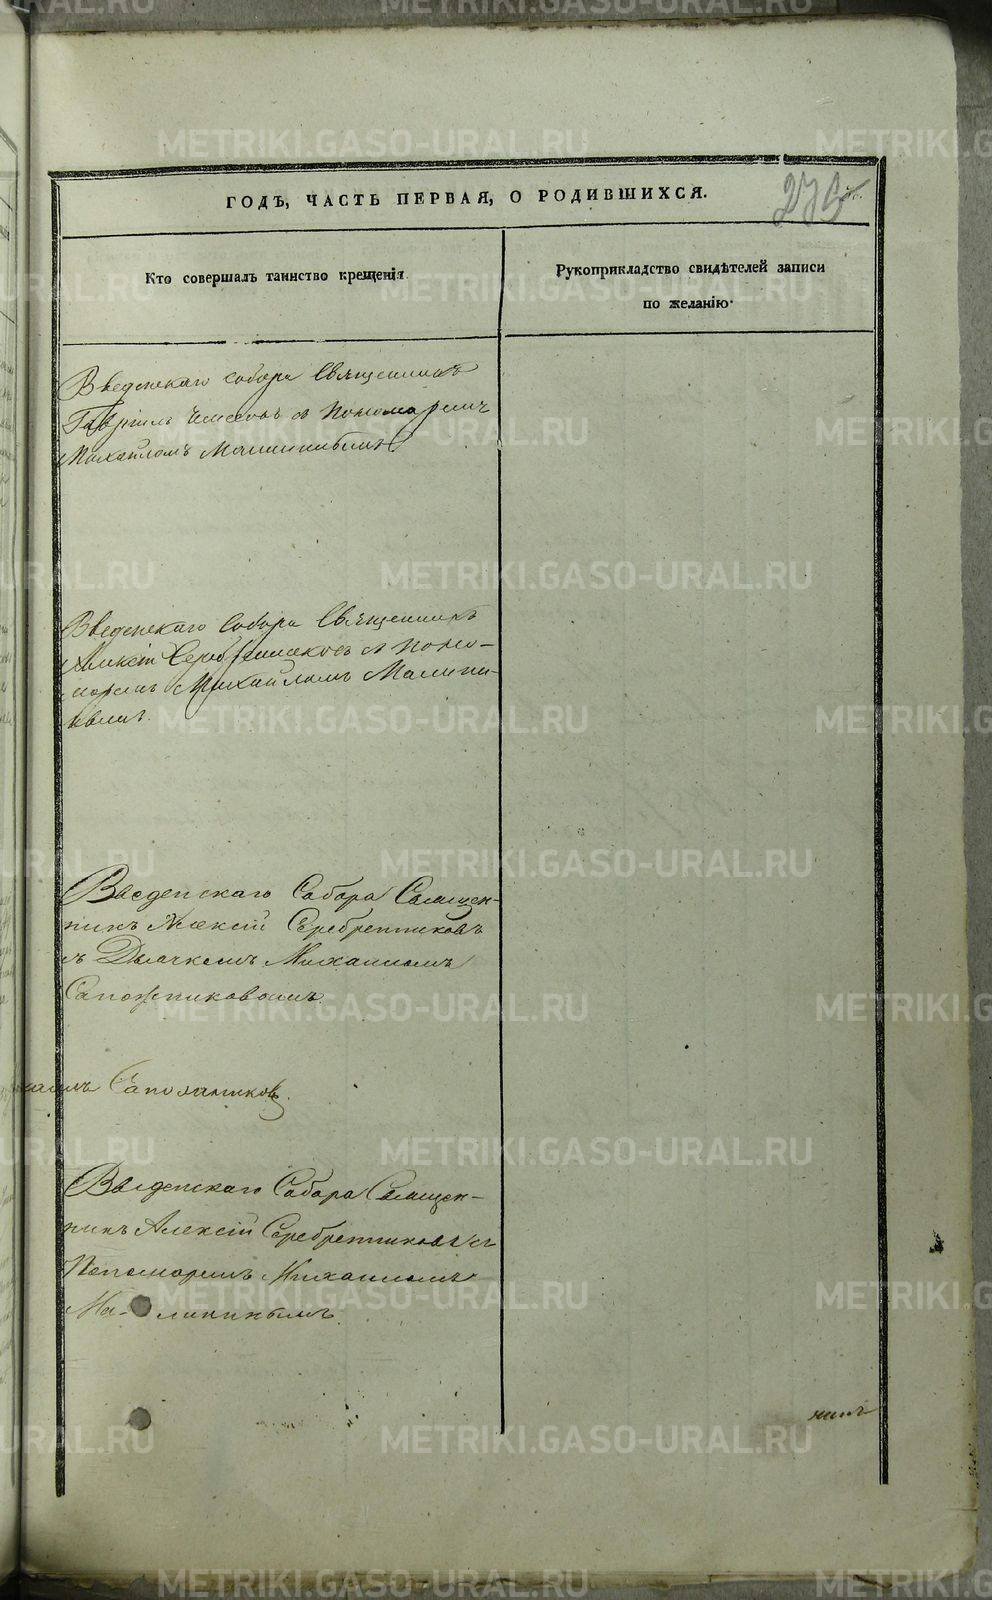 ГОДЪ, ЧАСТЬ ПЕРВАЯ, О РОДИВШИХСЯ.
Кто совершалъ таинство крещенія
Рукоприкладство свидѣтелей записи
по желанію.
Введенскаго собора Священникъ
Гавріилъ съ Пономаремъ
Михаиломъ
Введенскаго Собора Священникъ
Алексій Серебренниковъ съ Поно-
маремъ Михайломъ Малини-
нымъ.
Введенскаго Собора Священ-
никъ Алексій Серебренниковъ
съ Дьячкомъ Михаиломъ
Сапожниковомъ.
Сапожниковъ.
Введенскаго Собора Священ-
никъ Алексій Серебренниковъ съ
Пономаремъ Михаиломъ
Ма-лининымъ.
METRIKI.GASO-URAL.RU